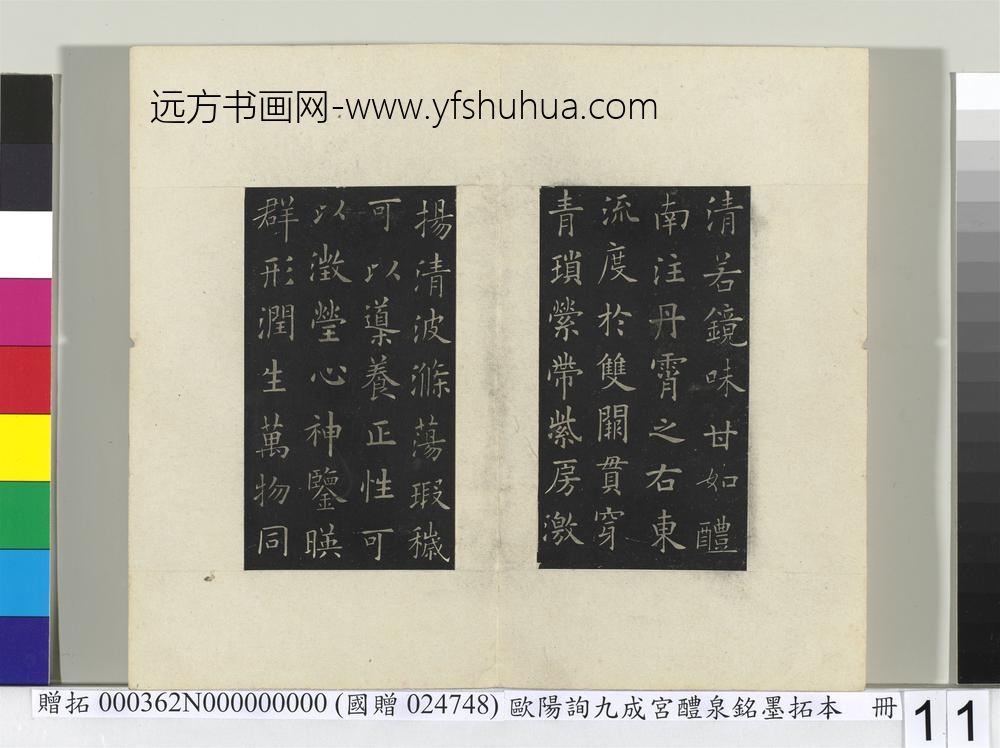 远方书画网-www.yfshuhua.com
清若鏡味甘如醴
南注丹霄之右東
流度於雙闕貫穿
青瑣縈帶紫房激
揚清波滌蕩瑕穢
可以導養正性可
以澂瑩心神鑒暎
群形潤生萬物同
贈拓 000362N000000000 (國贈 024748) 歐陽詢九成宮醴泉銘墨拓本 冊
11